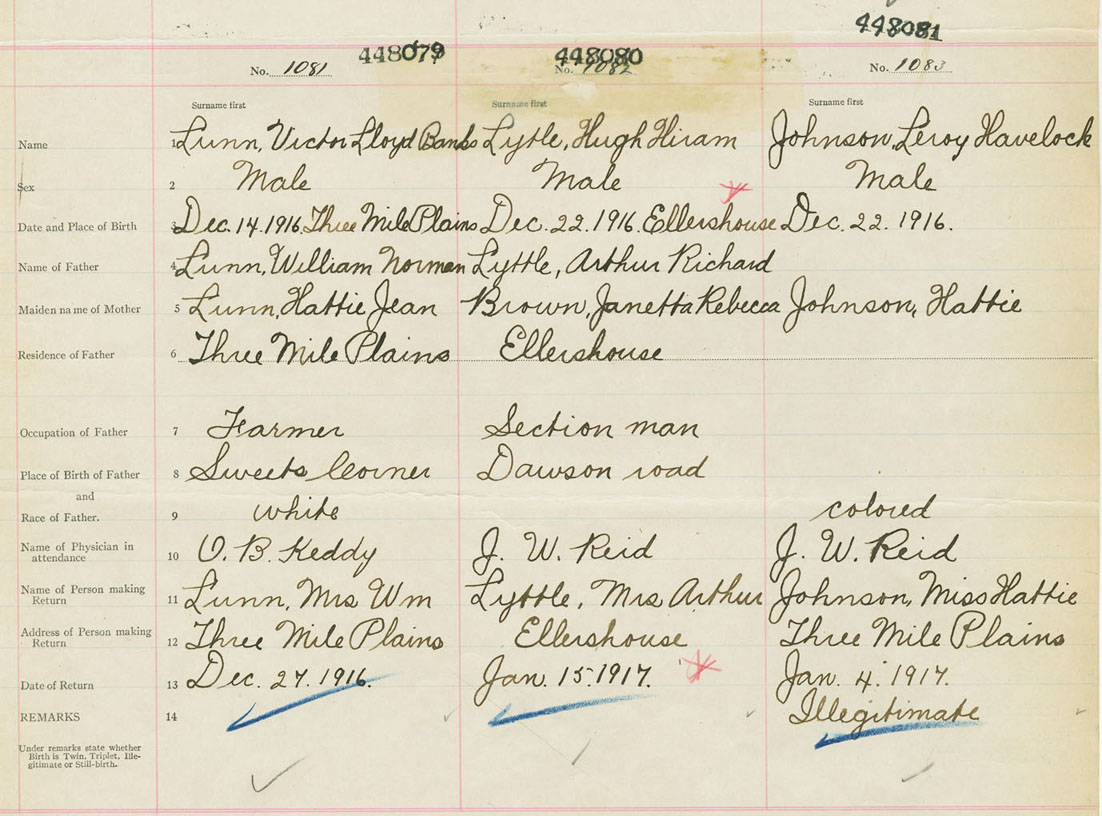 448081
448079 448080
No. 1081 No. 1082 No. 1083
Surname first Surname first Surname first
Name 1 Lunn, Victor Lloyd Banks Lyttle, Hugh Hiram Johnson, Leroy Havelock
Sex 2 Male Male Male
Date and Place of Birth 3 Dec. 14. 1916. Three Mile Plains Dec. 22. 1916. Ellershouse Dec. 22. 1916.
Name of Father 4 Lunn, William Norman Lyttle, Arthur Richard
Maiden name of Mother 5 Lunn, Hattie Jean Brown, Janetta Rebecca Johnson, Hattie
Residence of Father 6 Three Mile Plains Ellershouse
Occupation of Father 7 Farmer Section man
Place of Birth of Father 8 Sweets Corner Dawson road
and
Race of Father. 9 white colored
Name of Physician in
attendance 10 O. B. Keddy J. W. Reid J. W. Reid
Name of Person making
Return 11 Lunn, Mrs Wm Lyttle, Mrs Arthur Johnson, Miss Hattie
Address of Person making
Return 12 Three Mile Plains Ellershouse Three Mile Plains
Date of Return 13 Dec. 27. 1916. Jan. 15. 1917. Jan. 4. 1917.
REMARKS 14 Illegitimate
Under remarks state whether
Birth is Twin, Triplet, Ille-
gitimate or Still-birth.